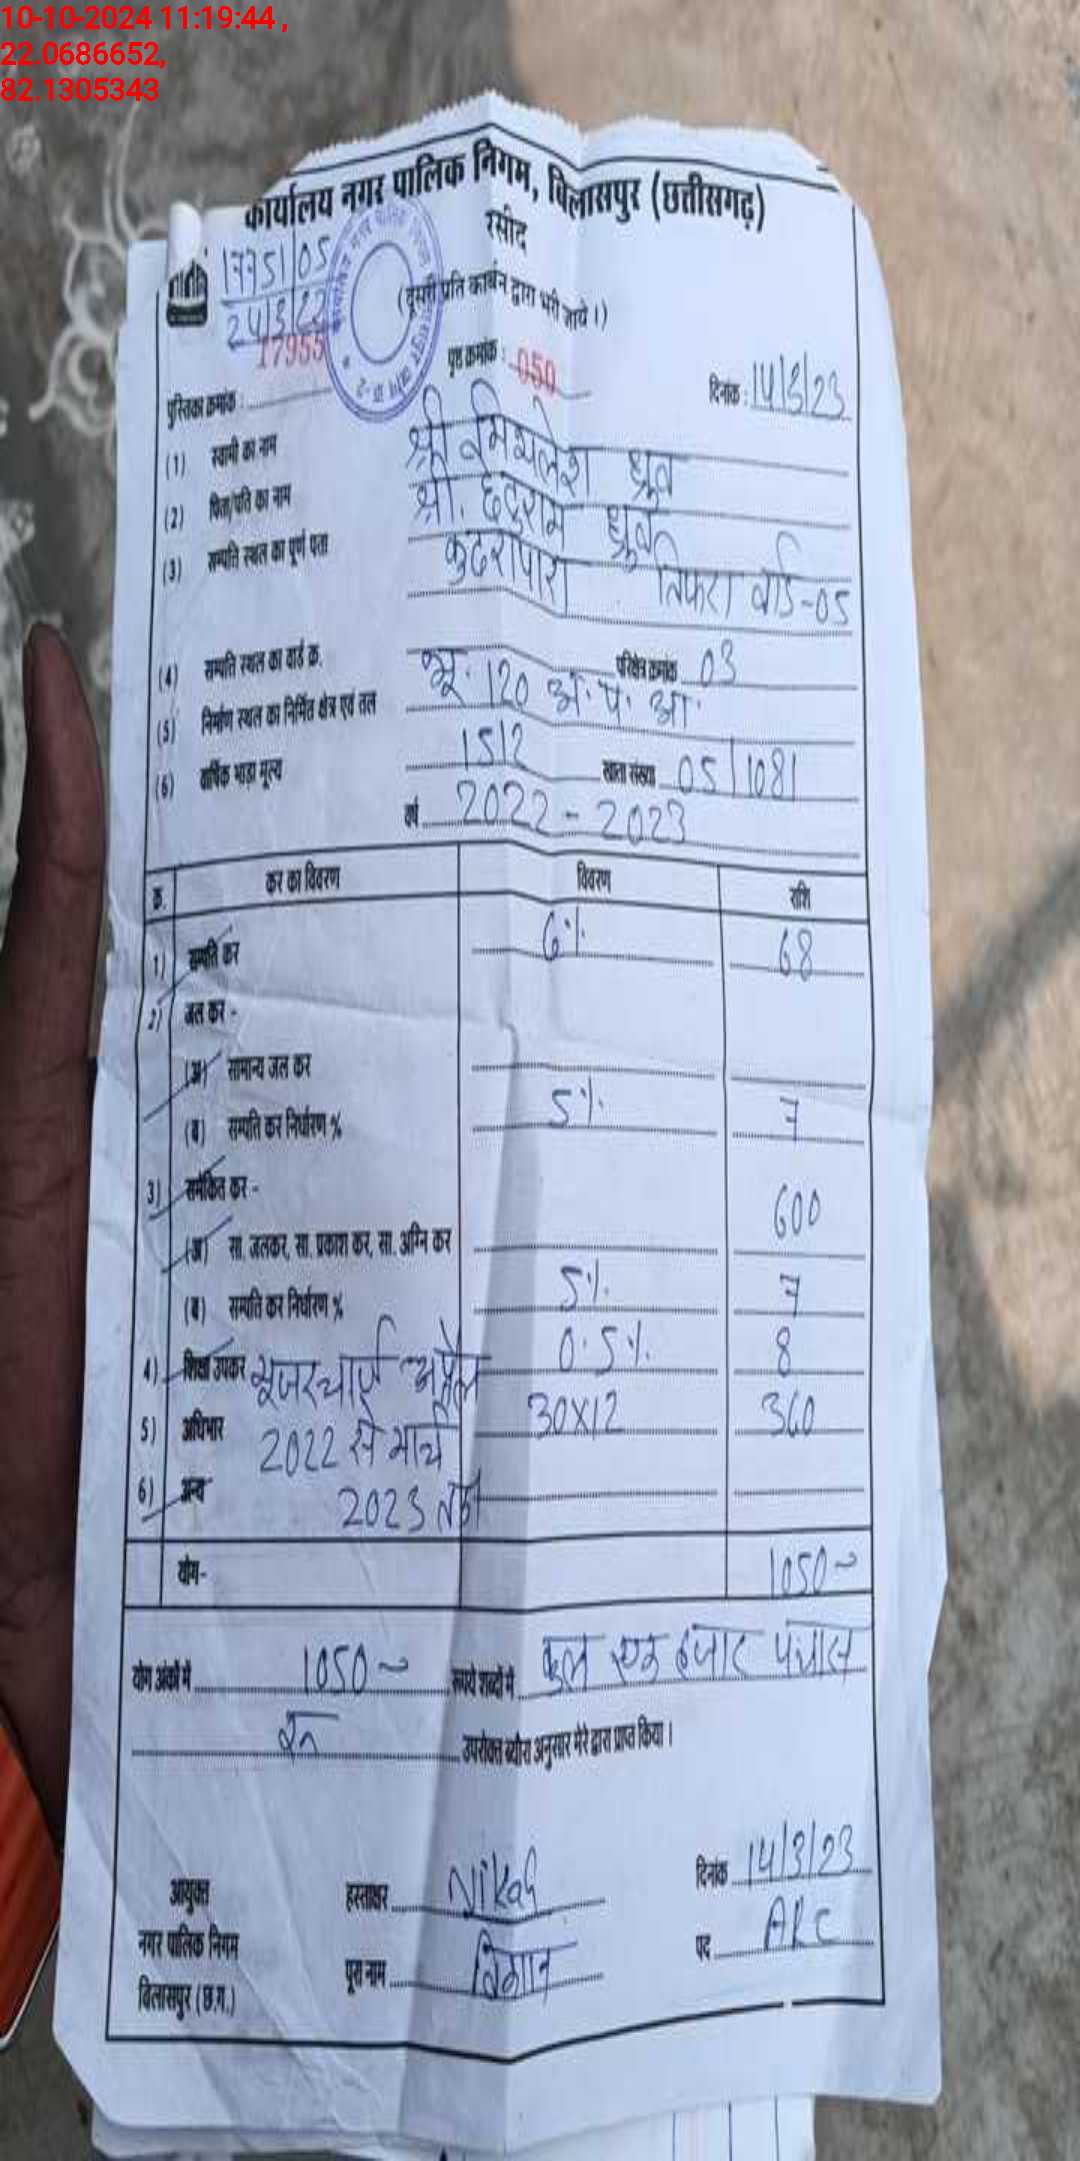 10-10-2024 11:19:44 ,
22.0686652,
82.1305343
कार्यालय नगर पालिक निगम, बिलासपुर (छत्तीसगढ़)
रसीद
(दूसरी प्रति कार्बन द्वारा भरी जाये।)
1775/05
17955
पुस्तिका क्रमांक :
पृष्ठ क्रमांक : 050
दिनांक : 14/3/23
(1) स्वामी का नाम श्री मिथलेश ध्रुव
(2) पिता/पति का नाम श्री. छेदुराम ध्रुव
(3) सम्पति स्थल का पूर्ण पता कुदरापारा तिफरा वार्ड-05
(4) सम्पति स्थल का वार्ड क्र. परिक्षेत्र क्रमांक 03
(5) निर्माण स्थल का निर्मित क्षेत्र एवं तल भू. 120 अ. प. आ.
(6) वार्षिक भाड़ा मूल्य 1512 खाता संख्या 05/1081
वर्ष 2022-2023
क्र. कर का विवरण विवरण राशि
1) सम्पति कर 6% 68
2) जल कर -
(अ) सामान्य जल कर
(ब) सम्पति कर निर्धारण % 5% 7
3) समेकित कर -
(अ) सा. जलकर, सा. प्रकाश कर, सा. अग्नि कर 600
(ब) सम्पति कर निर्धारण % 5% 7
4) शिक्षा उपकर 0.5% 8
यूजरचार्ज अप्रैल
5) अधिभार 2022 से मार्च 30X12 360
6) अन्य 2023 तक
योग- 1050
योग अंकों में 1050 रूपये शब्दों में कुल एक हजार पचास
रू उपरोक्त ब्यौरा अनुसार मेरे द्वारा प्राप्त किया।
आयुक्त
नगर पालिक निगम
बिलासपुर (छ.ग.)
हस्ताक्षर
दिनांक 14/3/23
पूरा नाम
पद ARC